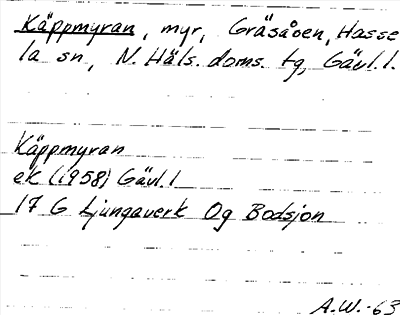 Käppmyran, myr, Gräsåsen, Hasse
la sn, N. Häls. doms. tg, Gävl. l.
Käppmyran
ek (1958) Gävl. l
17 G Ljungaverk Og Bodsjön
A.W. -63